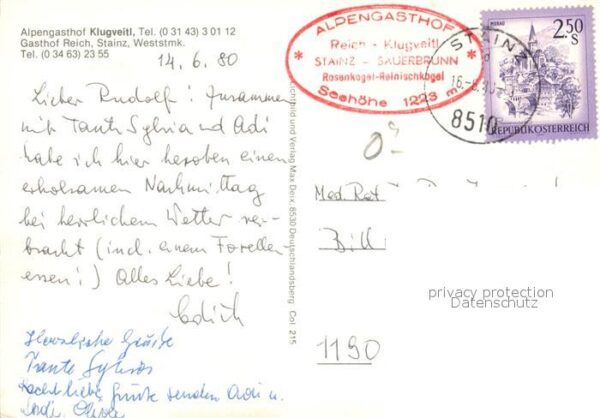 Alpengasthof Klugveitl, Tel. (0 31 43) 3 01 12
Gasthof Reich, Stainz, Weststmk.
Tel. (0 34 63) 23 55
14.6.80
Lieber Rudolf! Zusammen
mit Tante Sylvia und Adi
habe ich hier heroben einen
erholsamen Nachmittag
bei herrlichem Wetter ver-
bracht (incl. einem Forellen-
essen!) Alles Liebe!
Edith
Herzliche Grüße
Tante Sylvia
Recht liebe Grüße senden Adi u.
Lichtbild und Verlag Max Deix, 8530 Deutschlandsberg Col. 215
ALPENGASTHOF
Reich - Klugveitl
STAINZ - SAUERBRUNN
Rosenkogel-Reinischkogel
Seehöhe 1223 m
STAINZ
8510
MURAU
2.50 S
REPUBLIK ÖSTERREICH
Med. Rat
Bill
1190
privacy protection
Datenschutz